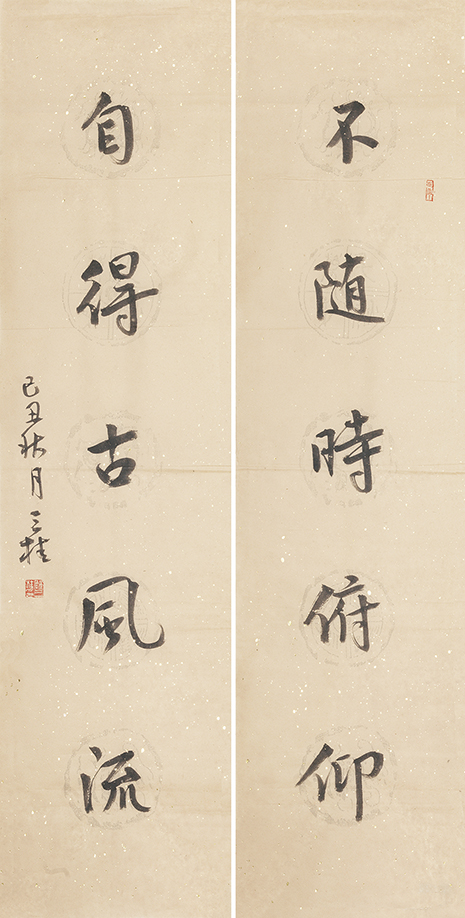 不随時俯仰
自得古風流
己丑秋月三桂